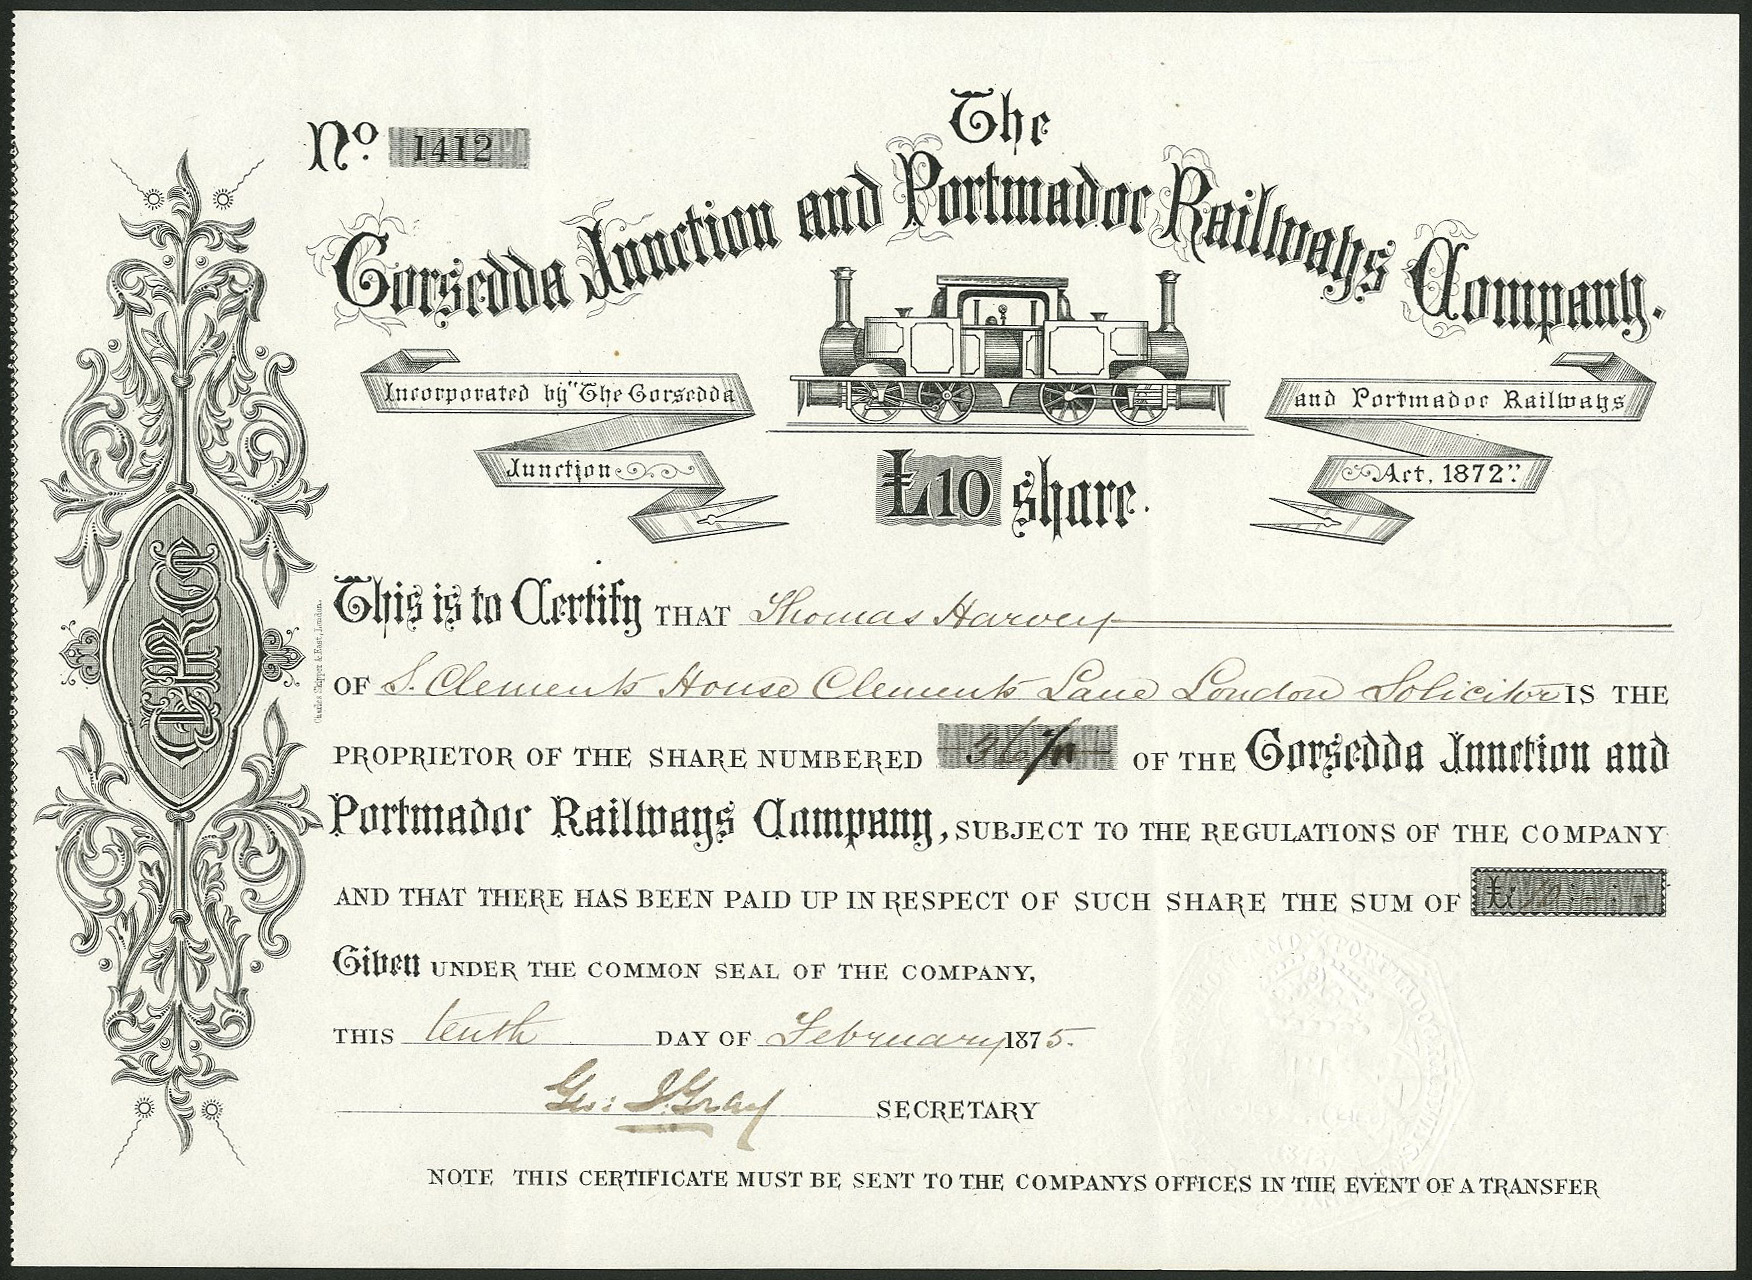 No. 1412
The
Gorsedda Junction and Portmadoc Railways Company.
Incorporated by "The Gorsedda
and Portmadoc Railways
Junction
Act, 1872".
£10 share.
This is to Certify THAT Thomas Harvey
OF S. Clements House Clements Lane London Solicitor IS THE
PROPRIETOR OF THE SHARE NUMBERED OF THE Gorsedda Junction and
Portmadoc Railways Company, SUBJECT TO THE REGULATIONS OF THE COMPANY
AND THAT THERE HAS BEEN PAID UP IN RESPECT OF SUCH SHARE THE SUM OF £
Given UNDER THE COMMON SEAL OF THE COMPANY,
THIS tenth DAY OF February 1875.
SECRETARY
NOTE THIS CERTIFICATE MUST BE SENT TO THE COMPANYS OFFICES IN THE EVENT OF A TRANSFER
Charles Skipper & East, London.